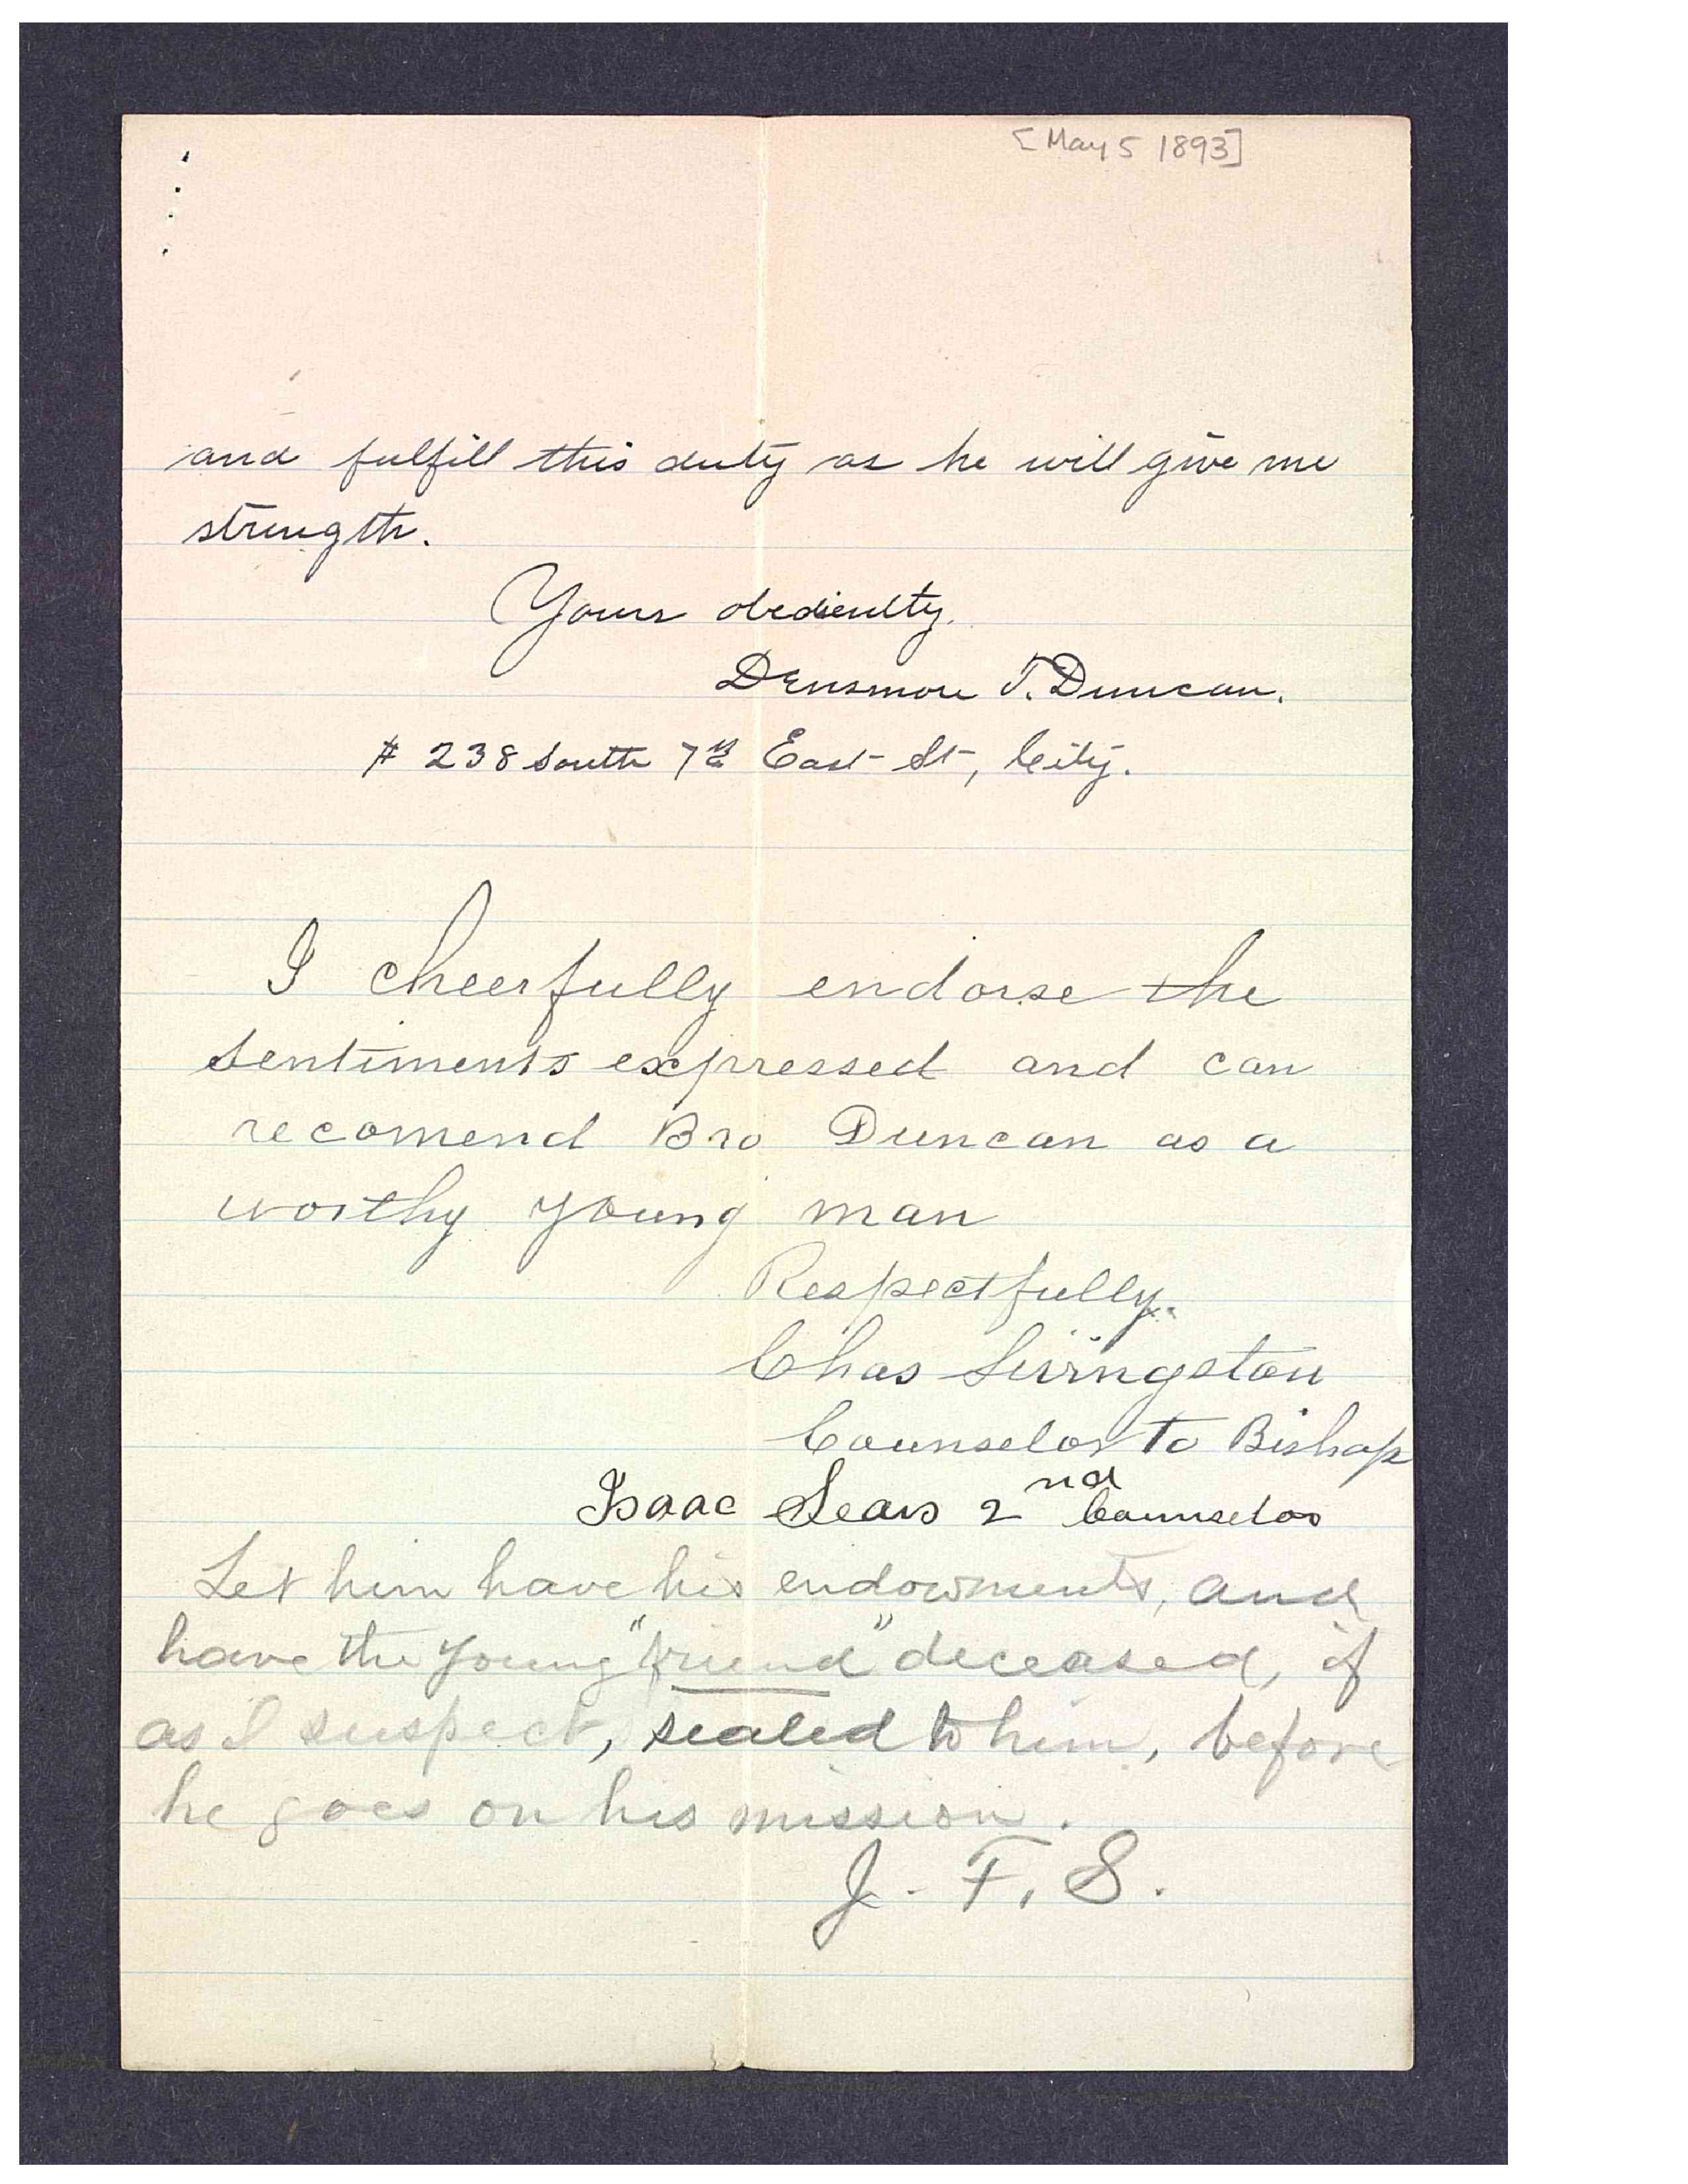 [May 5 1893]
and fulfill this duty as he will give me
strength.
Yours obediently.
Densmore T. Duncan.
# 238 South 7th East St, City.
I cheerfully endorse the
sentiments expressed and can
recomend Bro Duncan as a
worthy young man
Respectfully.
Chas Livingston
Counselor to Bishop
Isaac Sears 2nd Counselor
Let him have his endowments, and
have the young "friend" deceased, if
as I suspect, sealed to him, before
he goes on his mission.
J. F. S.